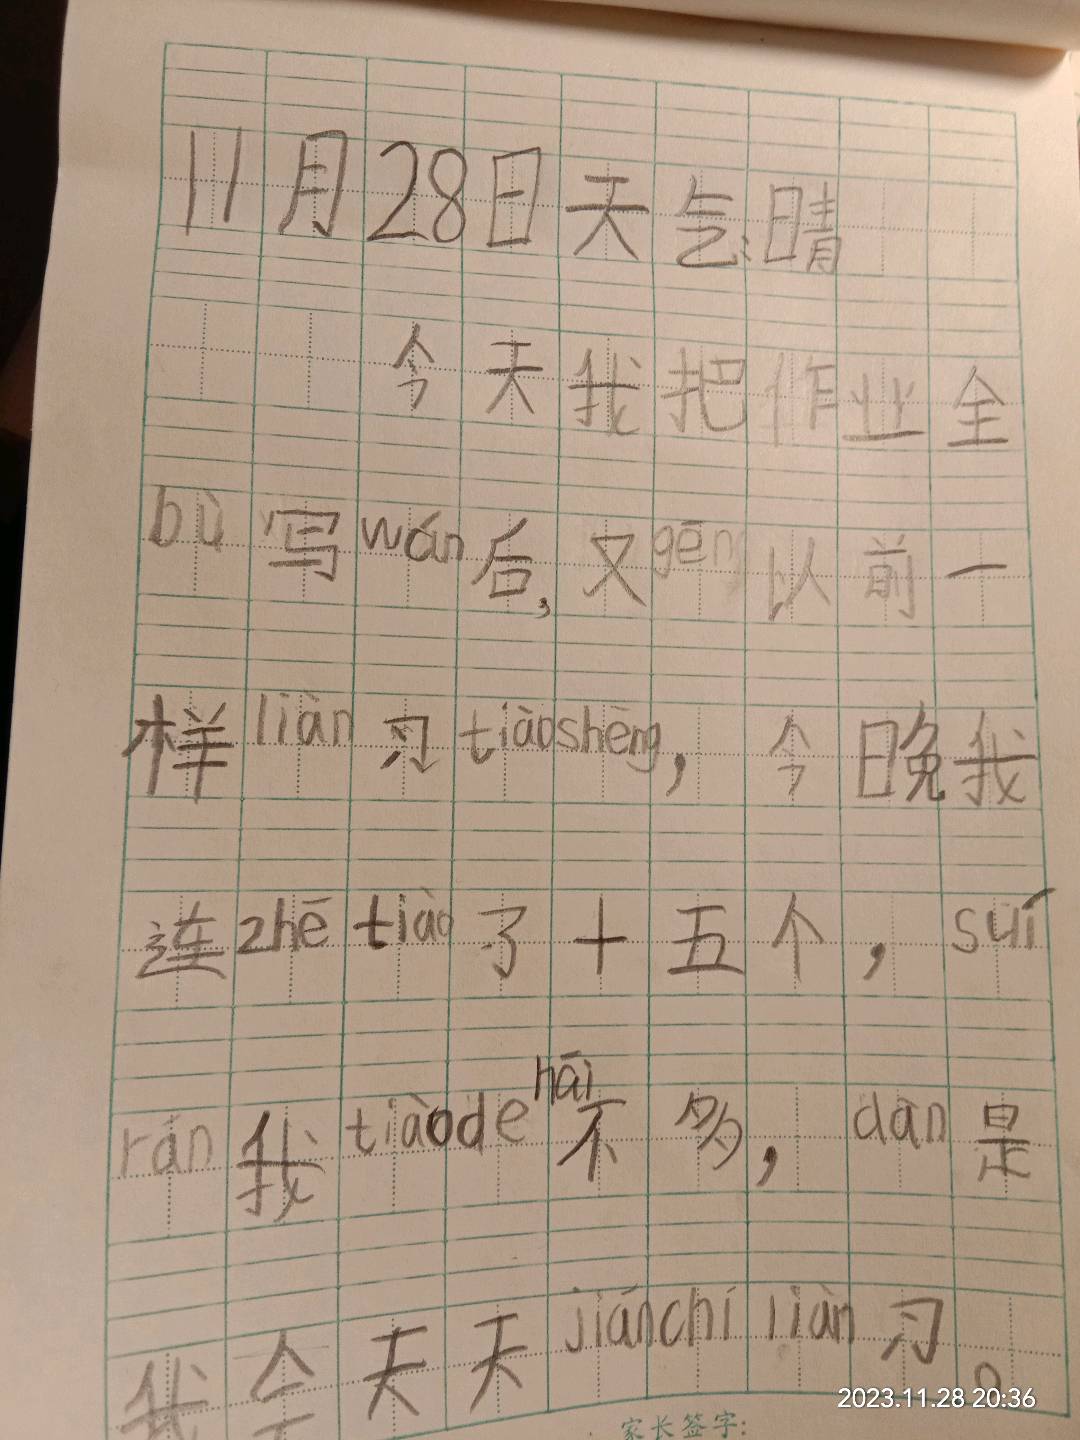 11月28日天气:晴
今天我把作业全
bù写wán后,又gēng以前一
样liàn习tiàoshèng,今晚我
连zhē tiào了十五个,suí
rán我tiàode hāi不多,dàn是
我会天天jiānchí liàn习。
家长签字:
2023.11.28 20:36